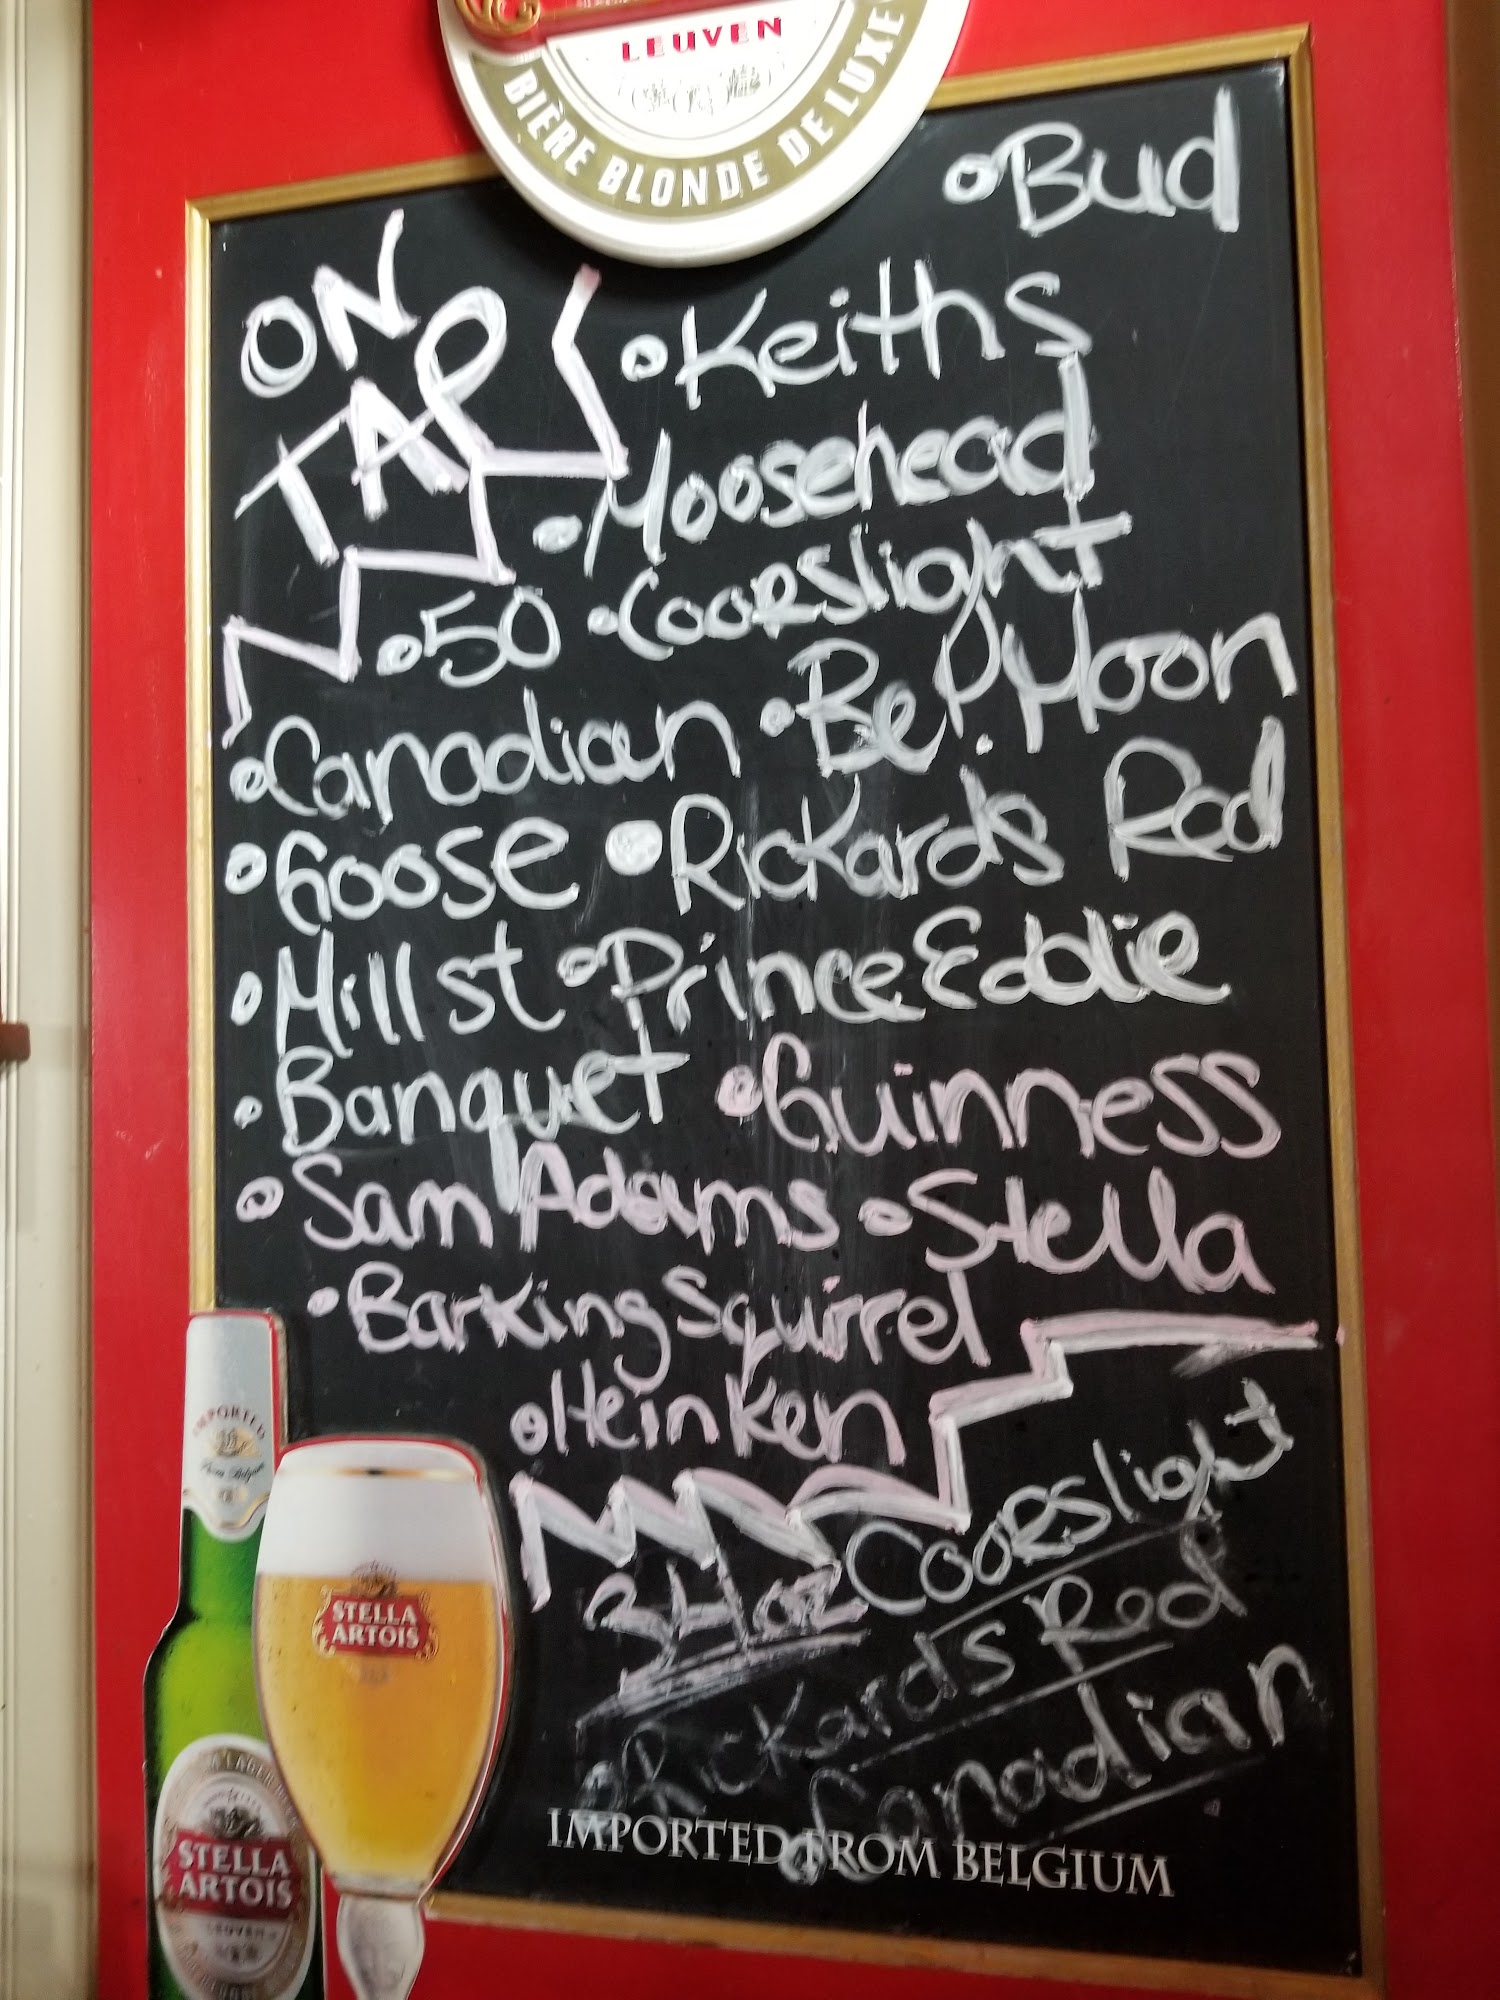 LEUVEN
BIÈRE BLONDE DE LUXE
•Bud
ON
TAP
•Keiths
•Moosehead
•50 •Coorslight
•Canadian •Bel. Moon
•Goose •Rickards Red
•Mill st •Prince Eddie
•Banquet •Guinness
•Sam Adams •Stella
•Barking Squirrel
•Heinken
Coorslight
•Rickards Red
•Canadian
IMPORTED FROM BELGIUM
IMPORTED
STELLA
ARTOIS
STELLA
ARTOIS
LEUVEN